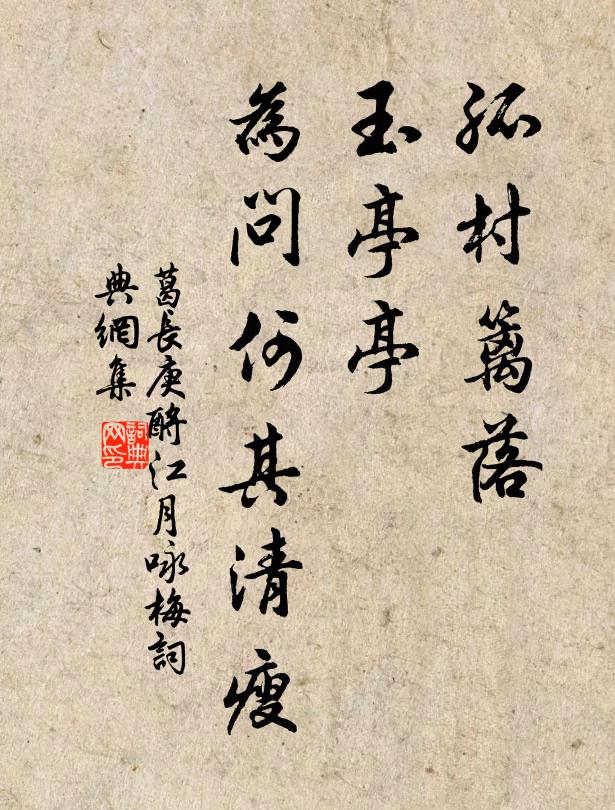 孤村篱落
玉亭亭
為問何其清瘦
葛長庚酹江月咏梅詞
典網集
詞典
网印